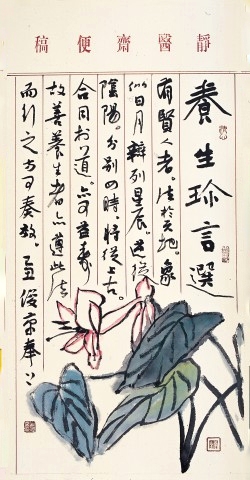 靜醫齋便稿
養生珍言選
有賢人者。法於天地。象
似日月。辯列星辰。逆從
陰陽。分別四時。將從上古
合同於道。亦可益壽
故善養生者亦遵此法
而行之方可奏效。乙丑